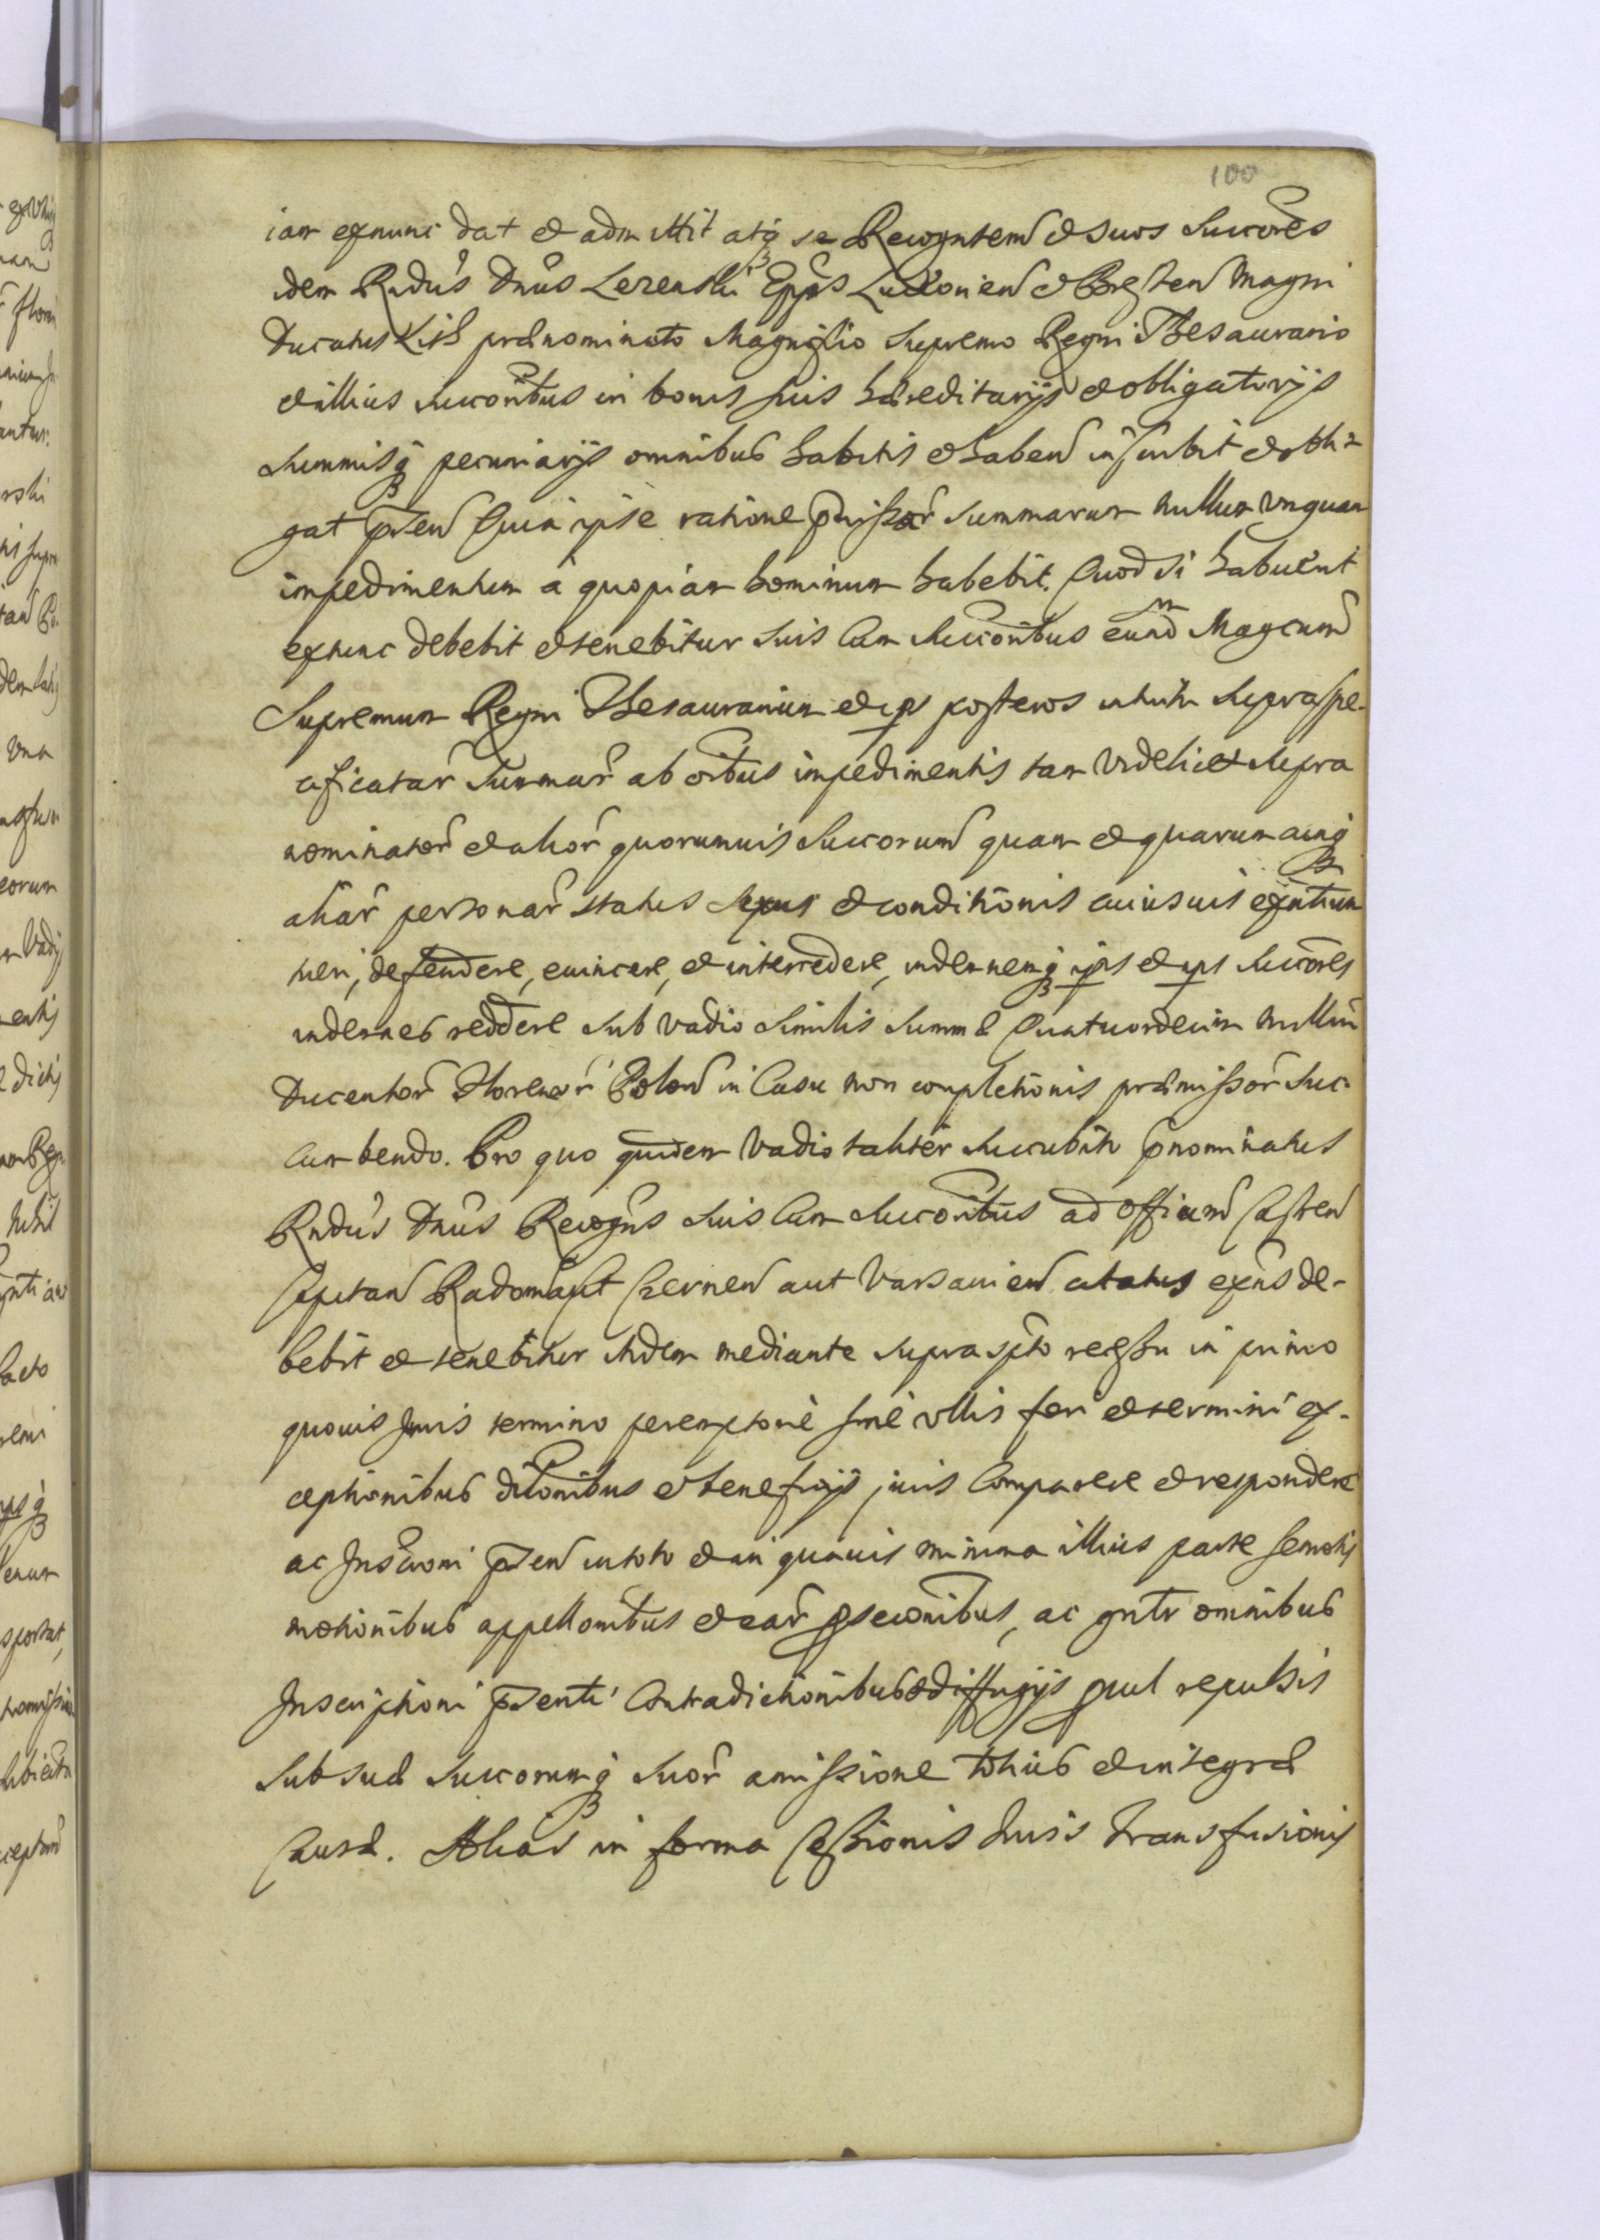 100
iam exnunc dat et admittit atq3 se Recogntem et suos Succores
idem Rndus Dnus Lezenski Epps Luceorien et Bresten Magni
Ducatus Lith prænominato Magnifico Supremo Regni Thesaurario
et illius succoribus in bonis suis hæreditarijs et obligatorijs
summisq3 pecuniarijs omnibus habitis et haben inscribit et obli-
gat pnten Quia ipse ratione pmissar summarum nullum vnquam
impedimentum à quopiam hominum habebit. Quod si habuerit
extunc debebit et tenebitur suis cum succoribus eund Magcum
Supremum Regni Thesaurarium et ips posteros intuitu supraspe-
cificatar summar ab oibus impedimentis tam videlicet supra
nominator et alior quorumuis succorum quam et quarumcunq3
aliar personar status sexus et conditionis cuiusuis existen
tueri, defendere, euincere, et intercedere, indemnemq3 ips et ips succores
indemnes reddere sub vadio similis summæ Quatuordecim millium
Ducentor Florenor Polon in Casu non completionis præmissor suc-
cumbendo. Pro quo quidem vadio taliter succubito pnominatus
Rndus Dnus Recogns suis cum succoribus ad Officium Castren
Capitan Radomast Czernen aut Varsauien citatus exns de-
bebit et tenebitur ibidem mediante suprascpto regssu in primo
quouis Juris termino peremptorie sine vllis fori et termini ex-
ceptionibus dilonibus et beneficijs juris Comparere et respondere
ac Inscrioni pnten in toto et in quauis minima illius parte semotis
motionibus appellonibus et ear psecunibus, ac gnlr omnibus
Inscriptioni psenti Contradictionibus et diffugijs pcul repulsis
sub sua succorumq3 suor amissione totius et integræ
Causæ. Alias in forma Cessionis Juris Transfusionis